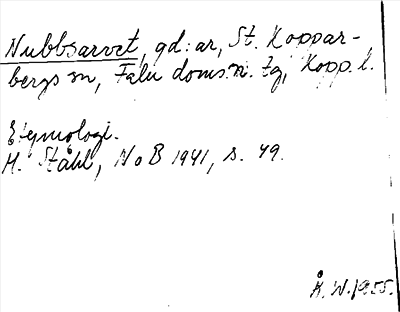 Nubbsarvet, gd:ar, St. Koppar-
bergs sn, Falu doms.n. tg, Kopp. l.
Etymologi.
H. Ståhl, NoB 1941, s. 49.
Å. W. 1955.